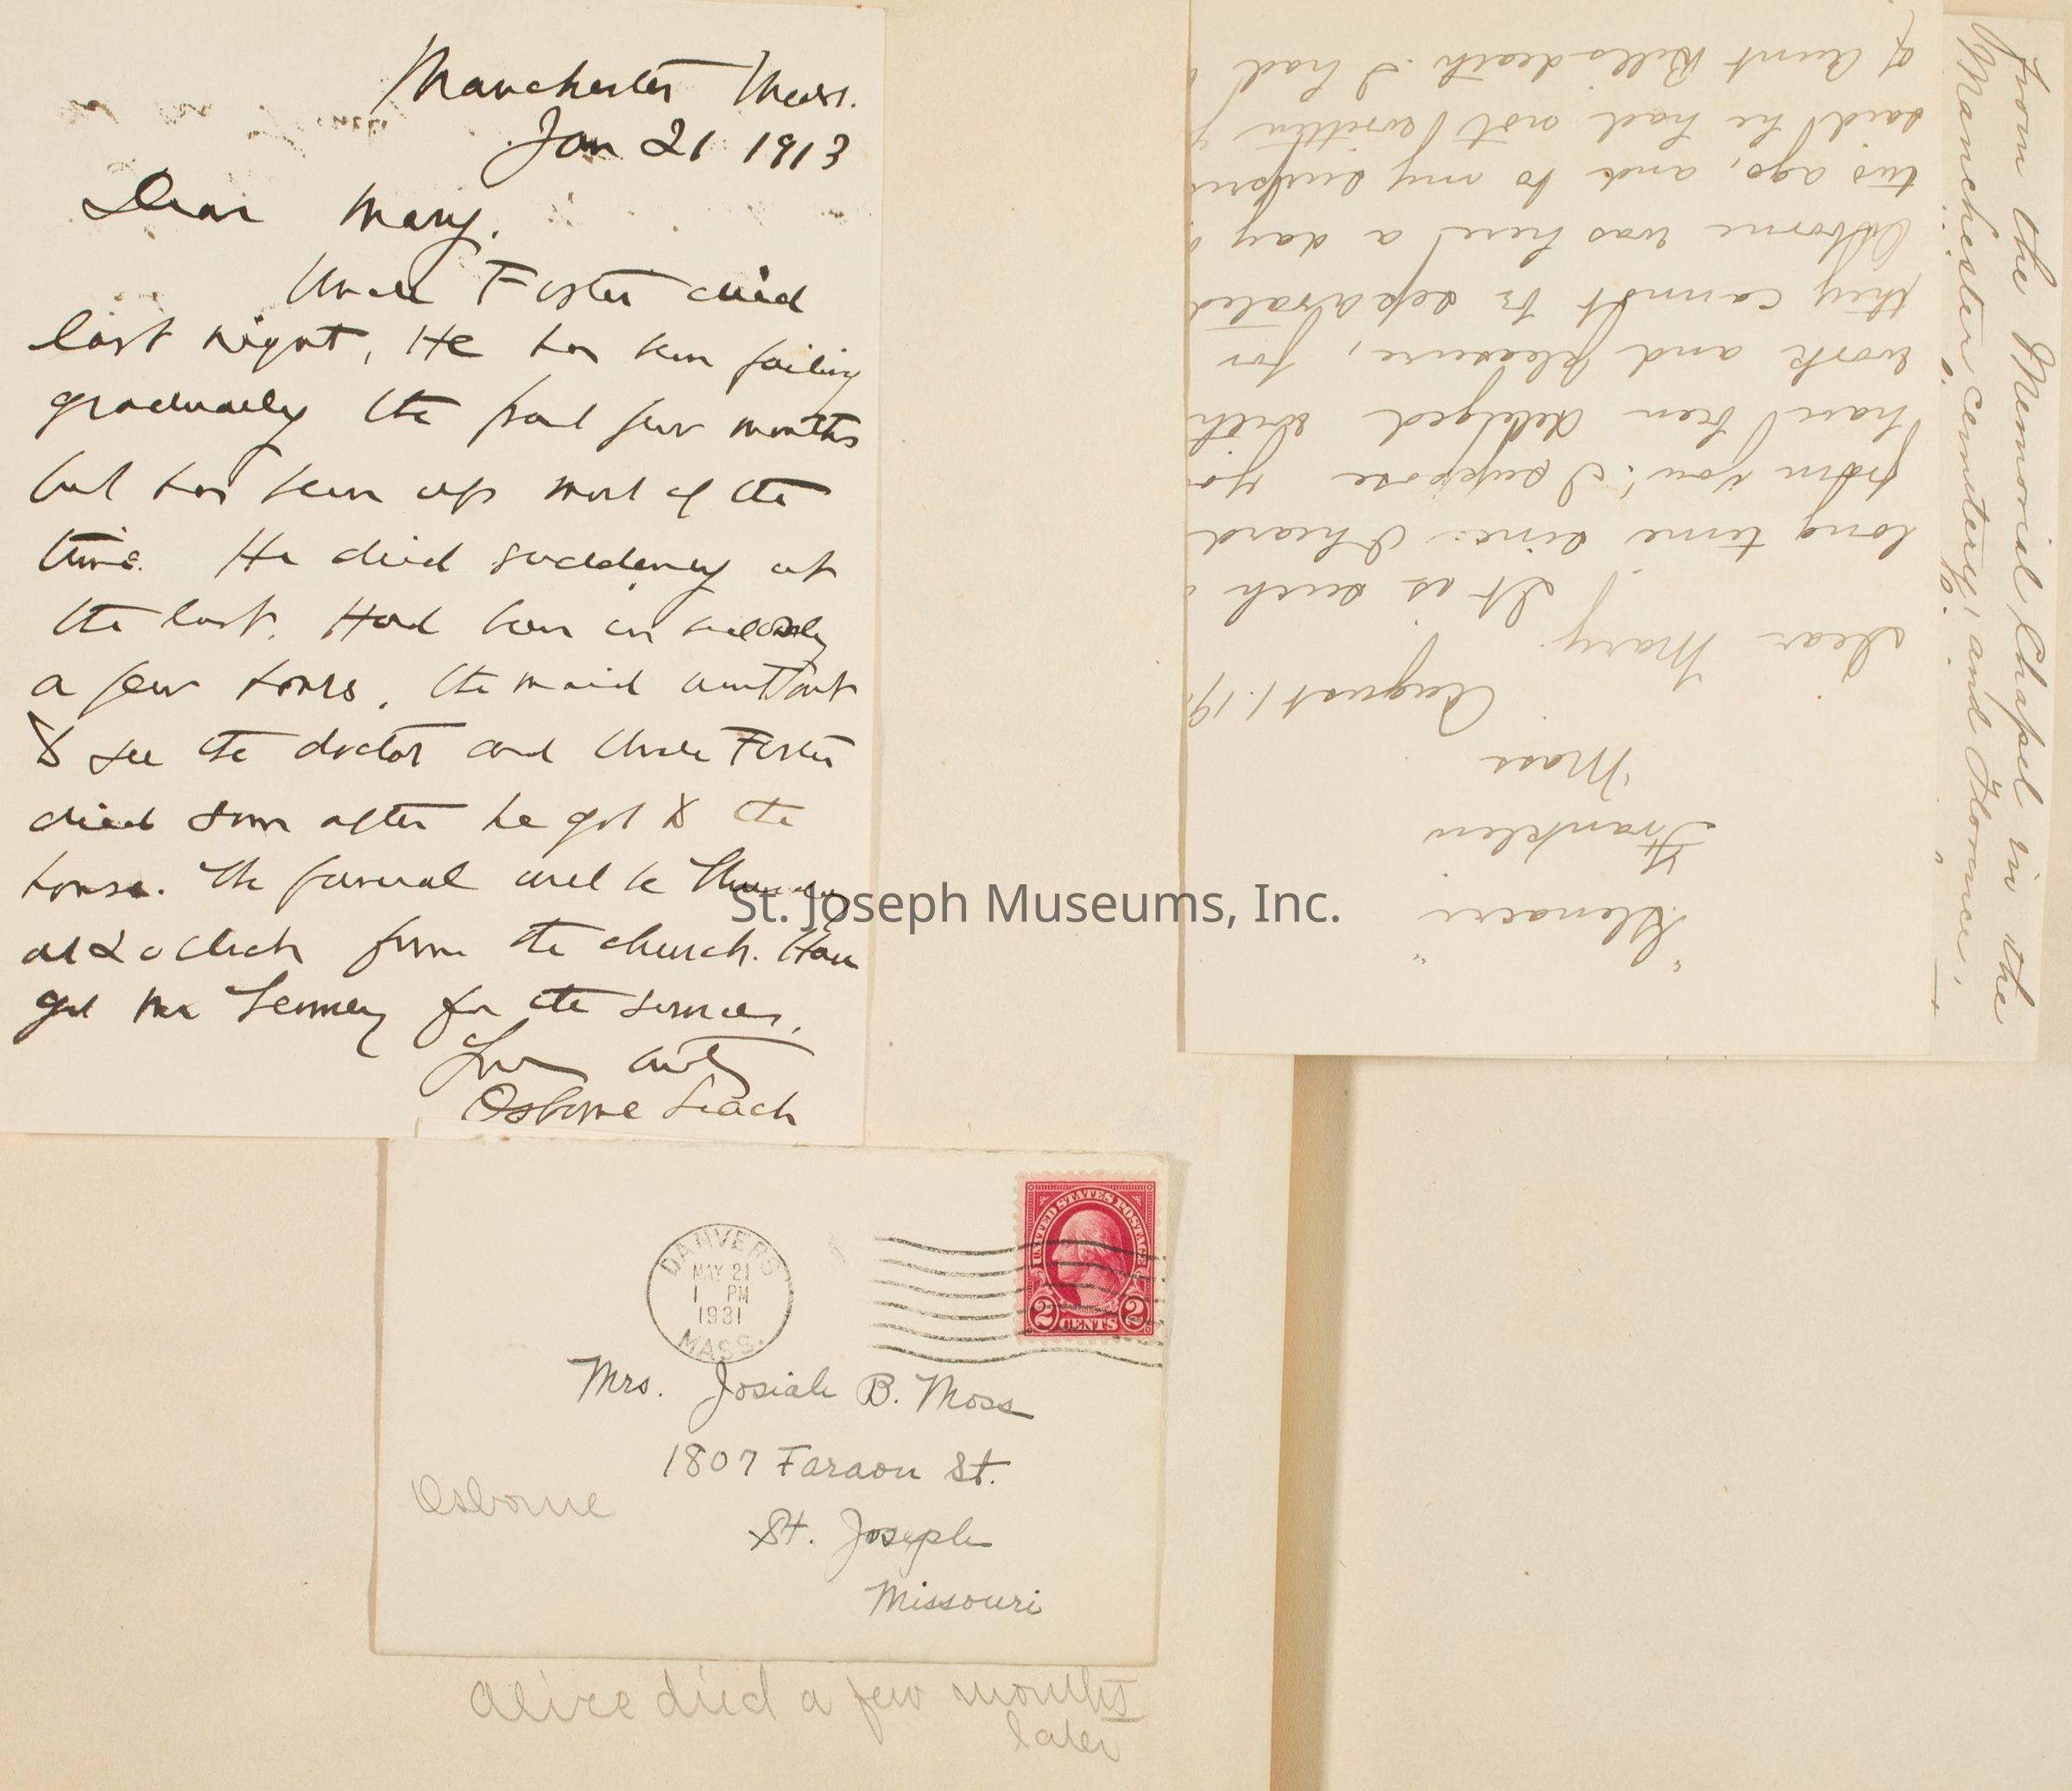 Manchester Mass.
Jan 21 1913
Dear Mary.
Uncle Foster died
last night, He has been failing
gradually the past few months
but has been up most of the
time. He died suddenly at
the last. Had been in bed only
a few hours. The maid went out
to see the doctor and Uncle Foster
died soon after he got to the
house. The funeral will be Thursday
at 2 o clock from the church. Have
got Mr for the services.
Osborne Leach
"Glenacre"
Franklin
Mass
August 1. 19
Dear Mary It is such a
long time since I heard
from you: I suppose you
have been deluged with
work and pleasure, for
they cannot be separated
Osborne was here a day
two ago, and to my
said he had not written
of Aunt Bell's death. I had
from the Memorial Chapel in the
Manchester, cemetery, and Florence,
DANVERS
MAY 21
1 PM
1931
MASS.
UNITED STATES POSTAGE
2 CENTS 2
Mrs. Josiah B. Moss
1807 Faraon St.
St. Joseph
Missouri
Osborne
Alice died a few months
later
St. Joseph Museums, Inc.